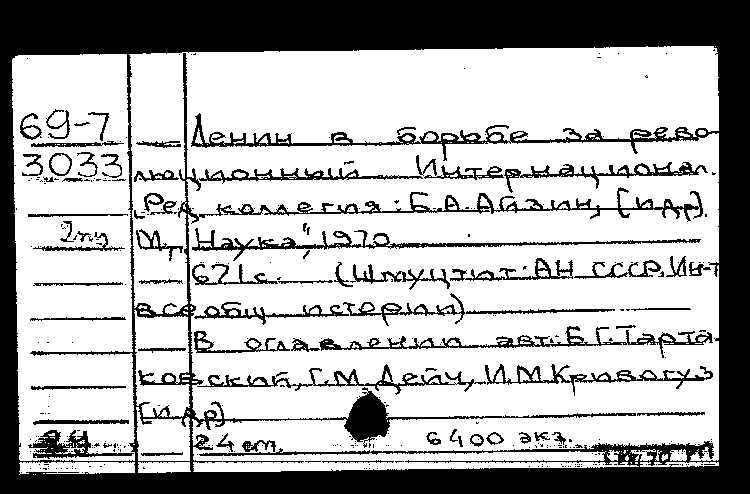 69-7 Ленин в борьбе за рево-
3033 люционный Интернационал.
Ред. коллегия: Б.А.Айзин, [и др].
М., "Наука", 1970
671с. (Шмуцтит: АН СССР. Ин-т
всеобщ истории)
В оглавлении авт: Б.Г.Тарта-
ковский, Г.М.Дейч, И.М.Кривогуз
[и др]
24 см. 6400 экз.